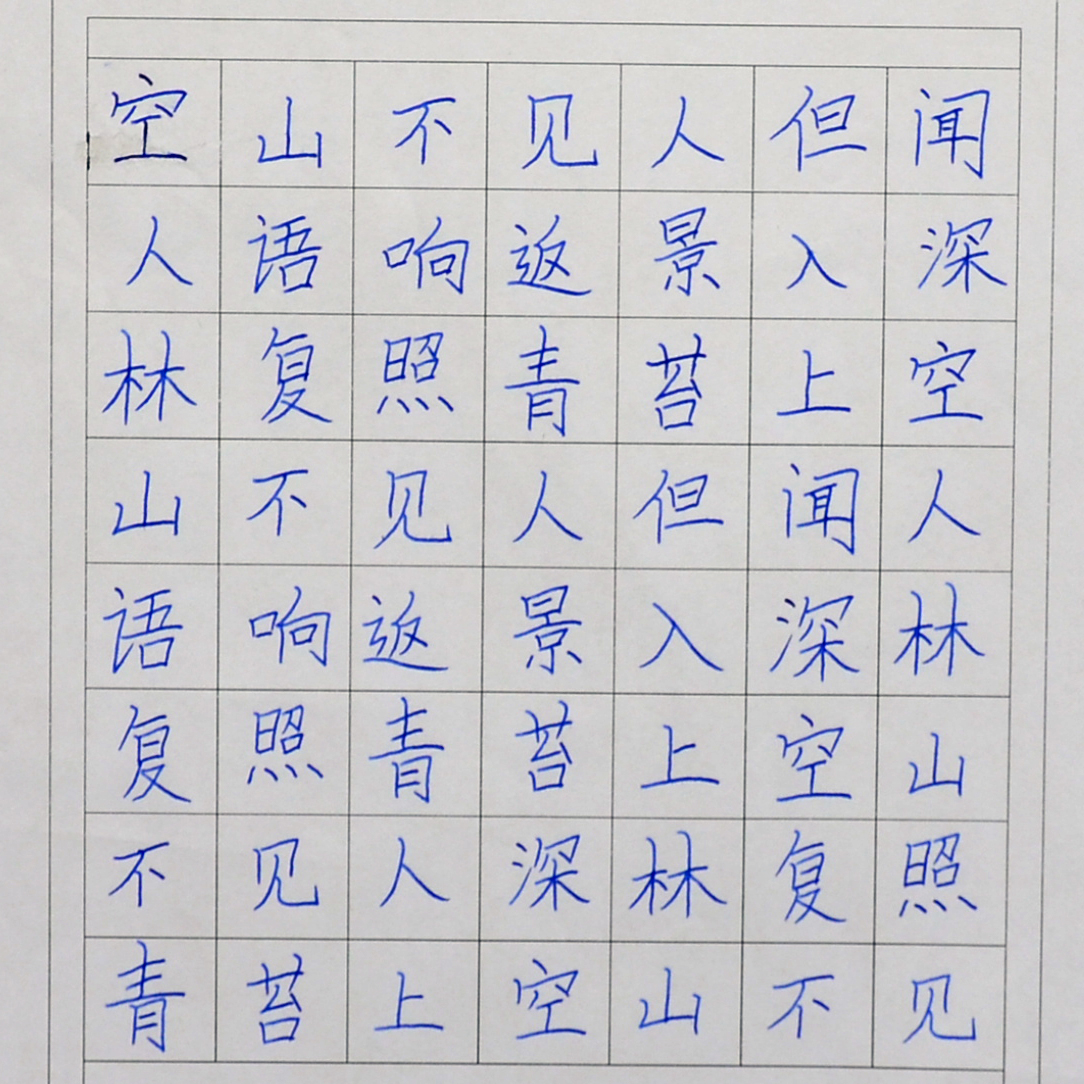 空山不见人但闻
人语响返景入深
林复照青苔上空
山不见人但闻人
语响返景入深林
复照青苔上空山
不见人深林复照
青苔上空山不见